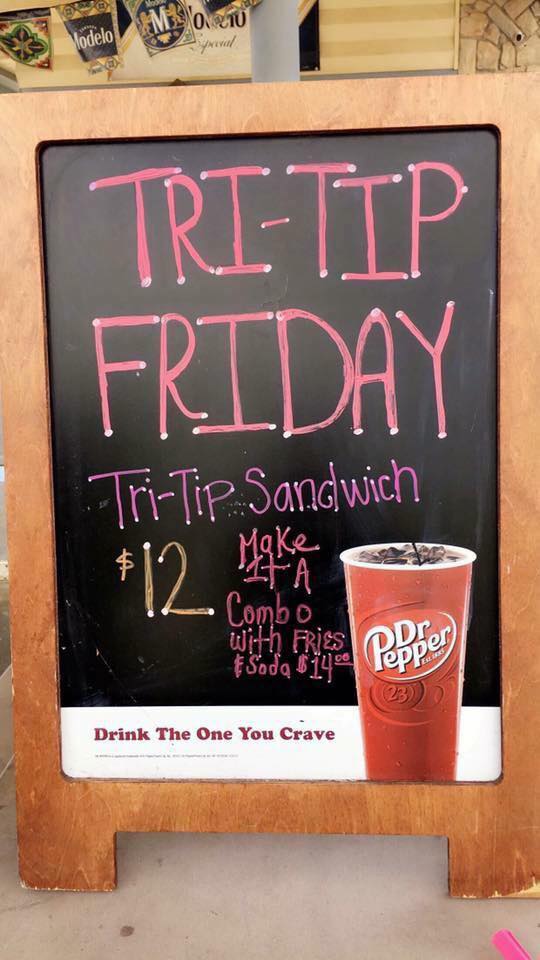 Modelo
M
Modelo
Especial
TRI-TIP
FRIDAY
Tri-Tip Sandwich
$12
Make
It A
Combo
With FRIES
& Soda $14⁰⁰
Dr
Pepper
EST. 1885
23
Drink The One You Crave